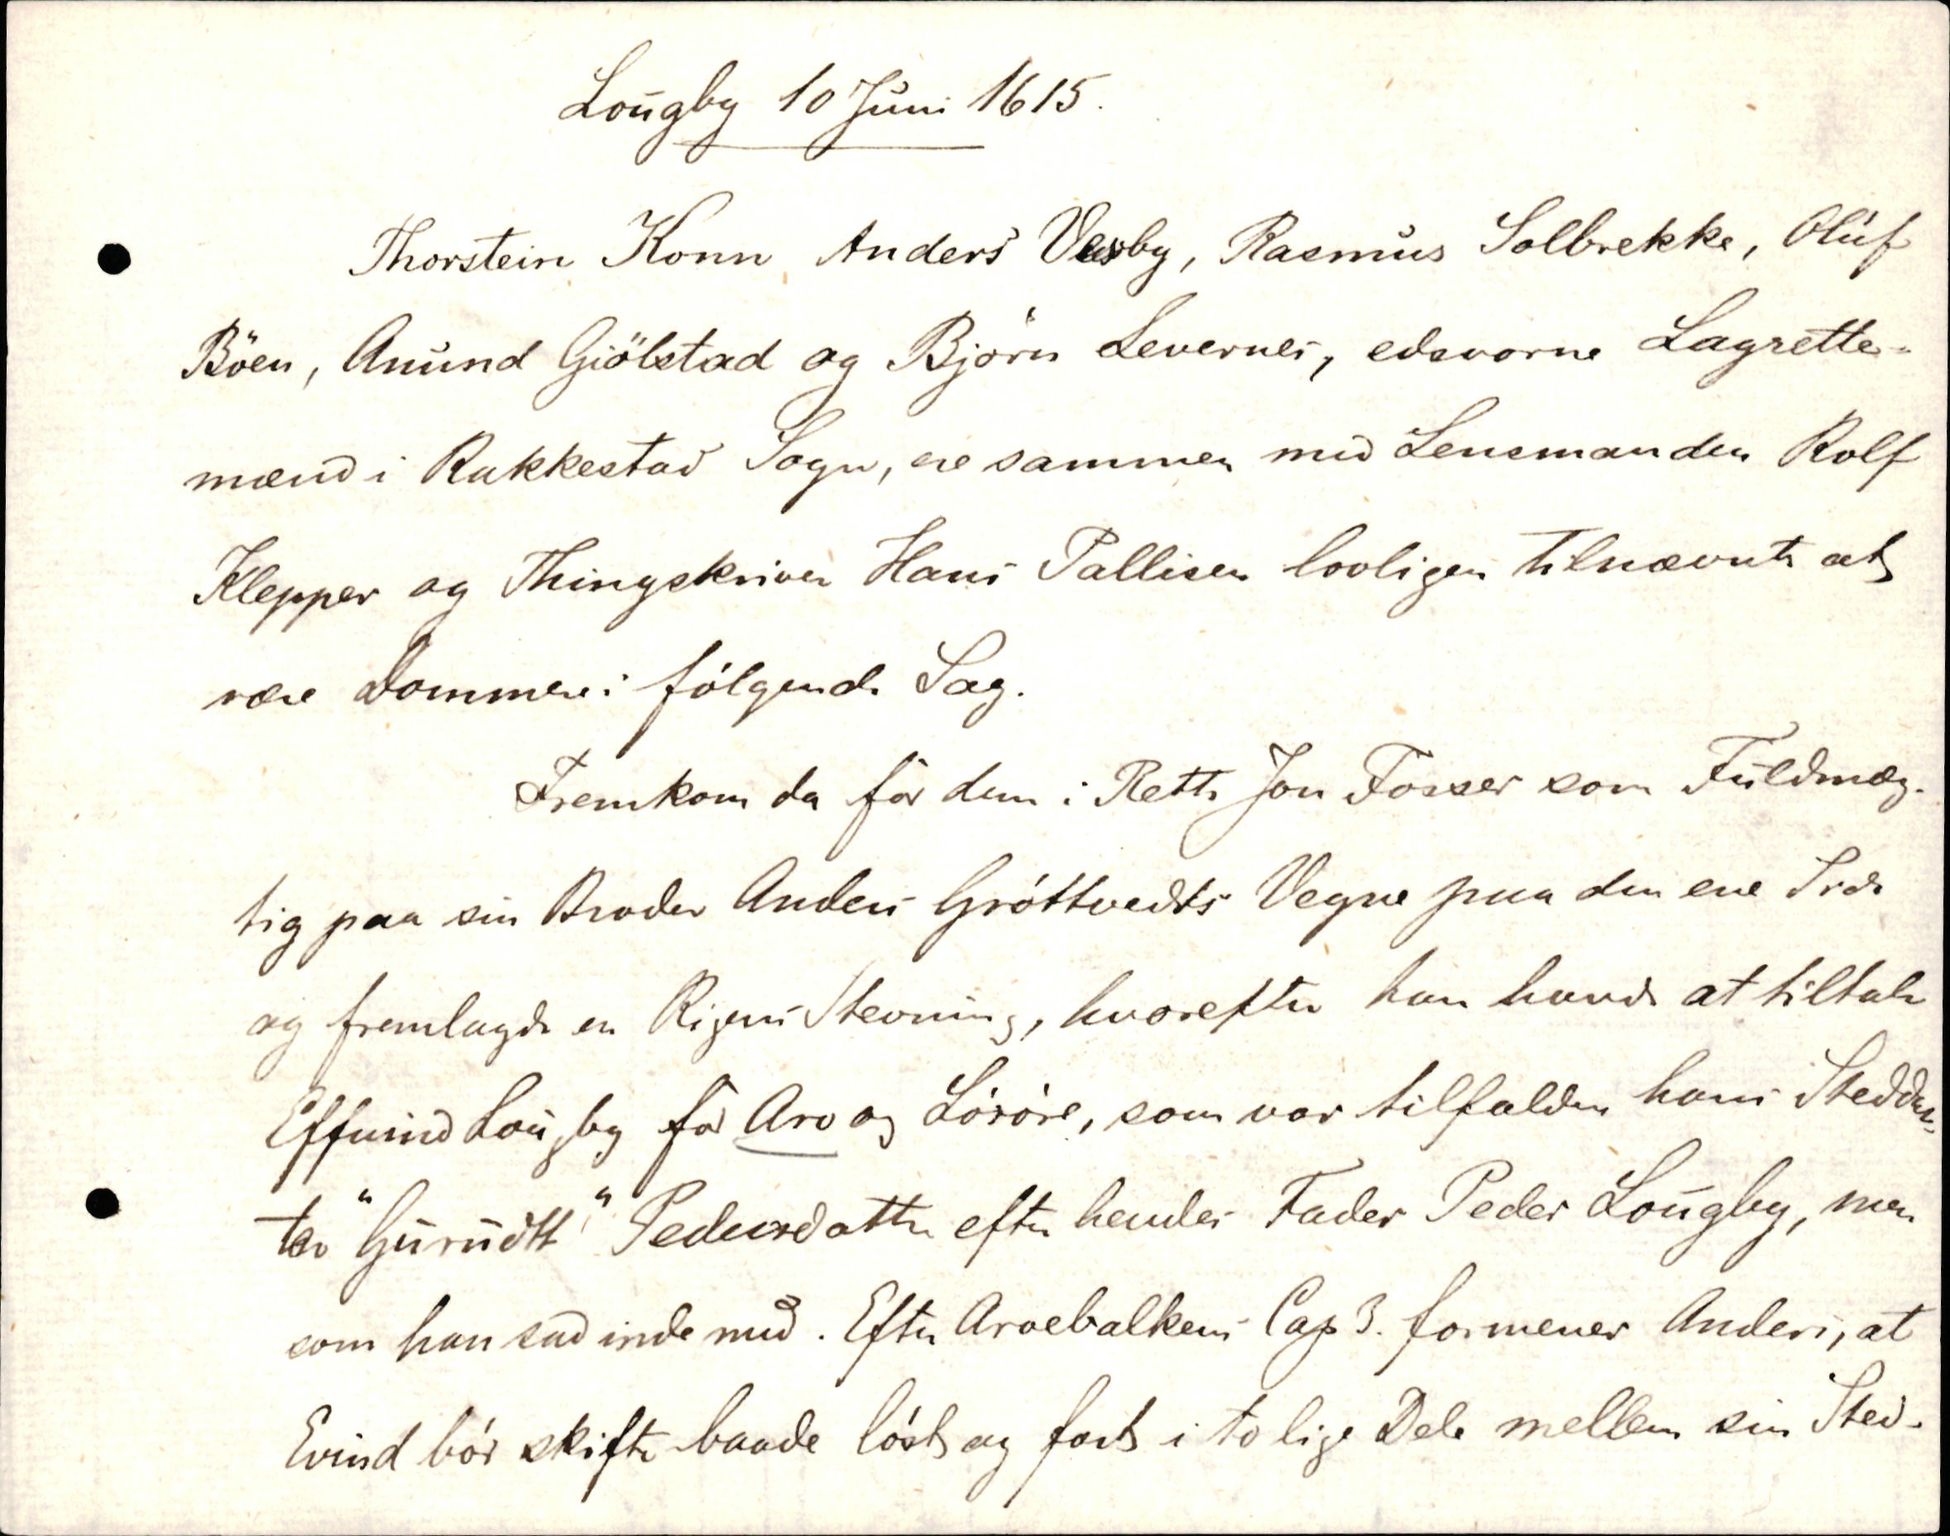 Lougby 10 Juni 1615.
Thorstein Konn Anders Vesby, Rasmus Solbrekke, Oluf
Böen, Anund Giölstad og Björn Levernes, edsvorne Lagrette-
mænd i Rakkestad Sogn, ere sammen med Lensmanden Rolf
Klepper og Thingskriver Hans Pallisen lovligen tilnævnte at
være Dommere i følgende Sag.
Fremkom da for dem i Rette Jon Fosser som Fuldmæg-
tig paa sin Broder Anders Gróttvedts Vegne paa den ene Side
og fremlagde en Rigens Stevning, hvorefter han havde at tiltale
Effuind Lougby for Arv og Lósóre, som var tilfalden hans Steddat-
ter "Guruditt" Pedersdatter efter hendes Fader Peder Lougby, men
som han sad inde med. Efter Arvebalkens Cap 3. formener Anders, at
Evind bór skifte baade lóst og fast i to lige Dele mellem sin Sted-